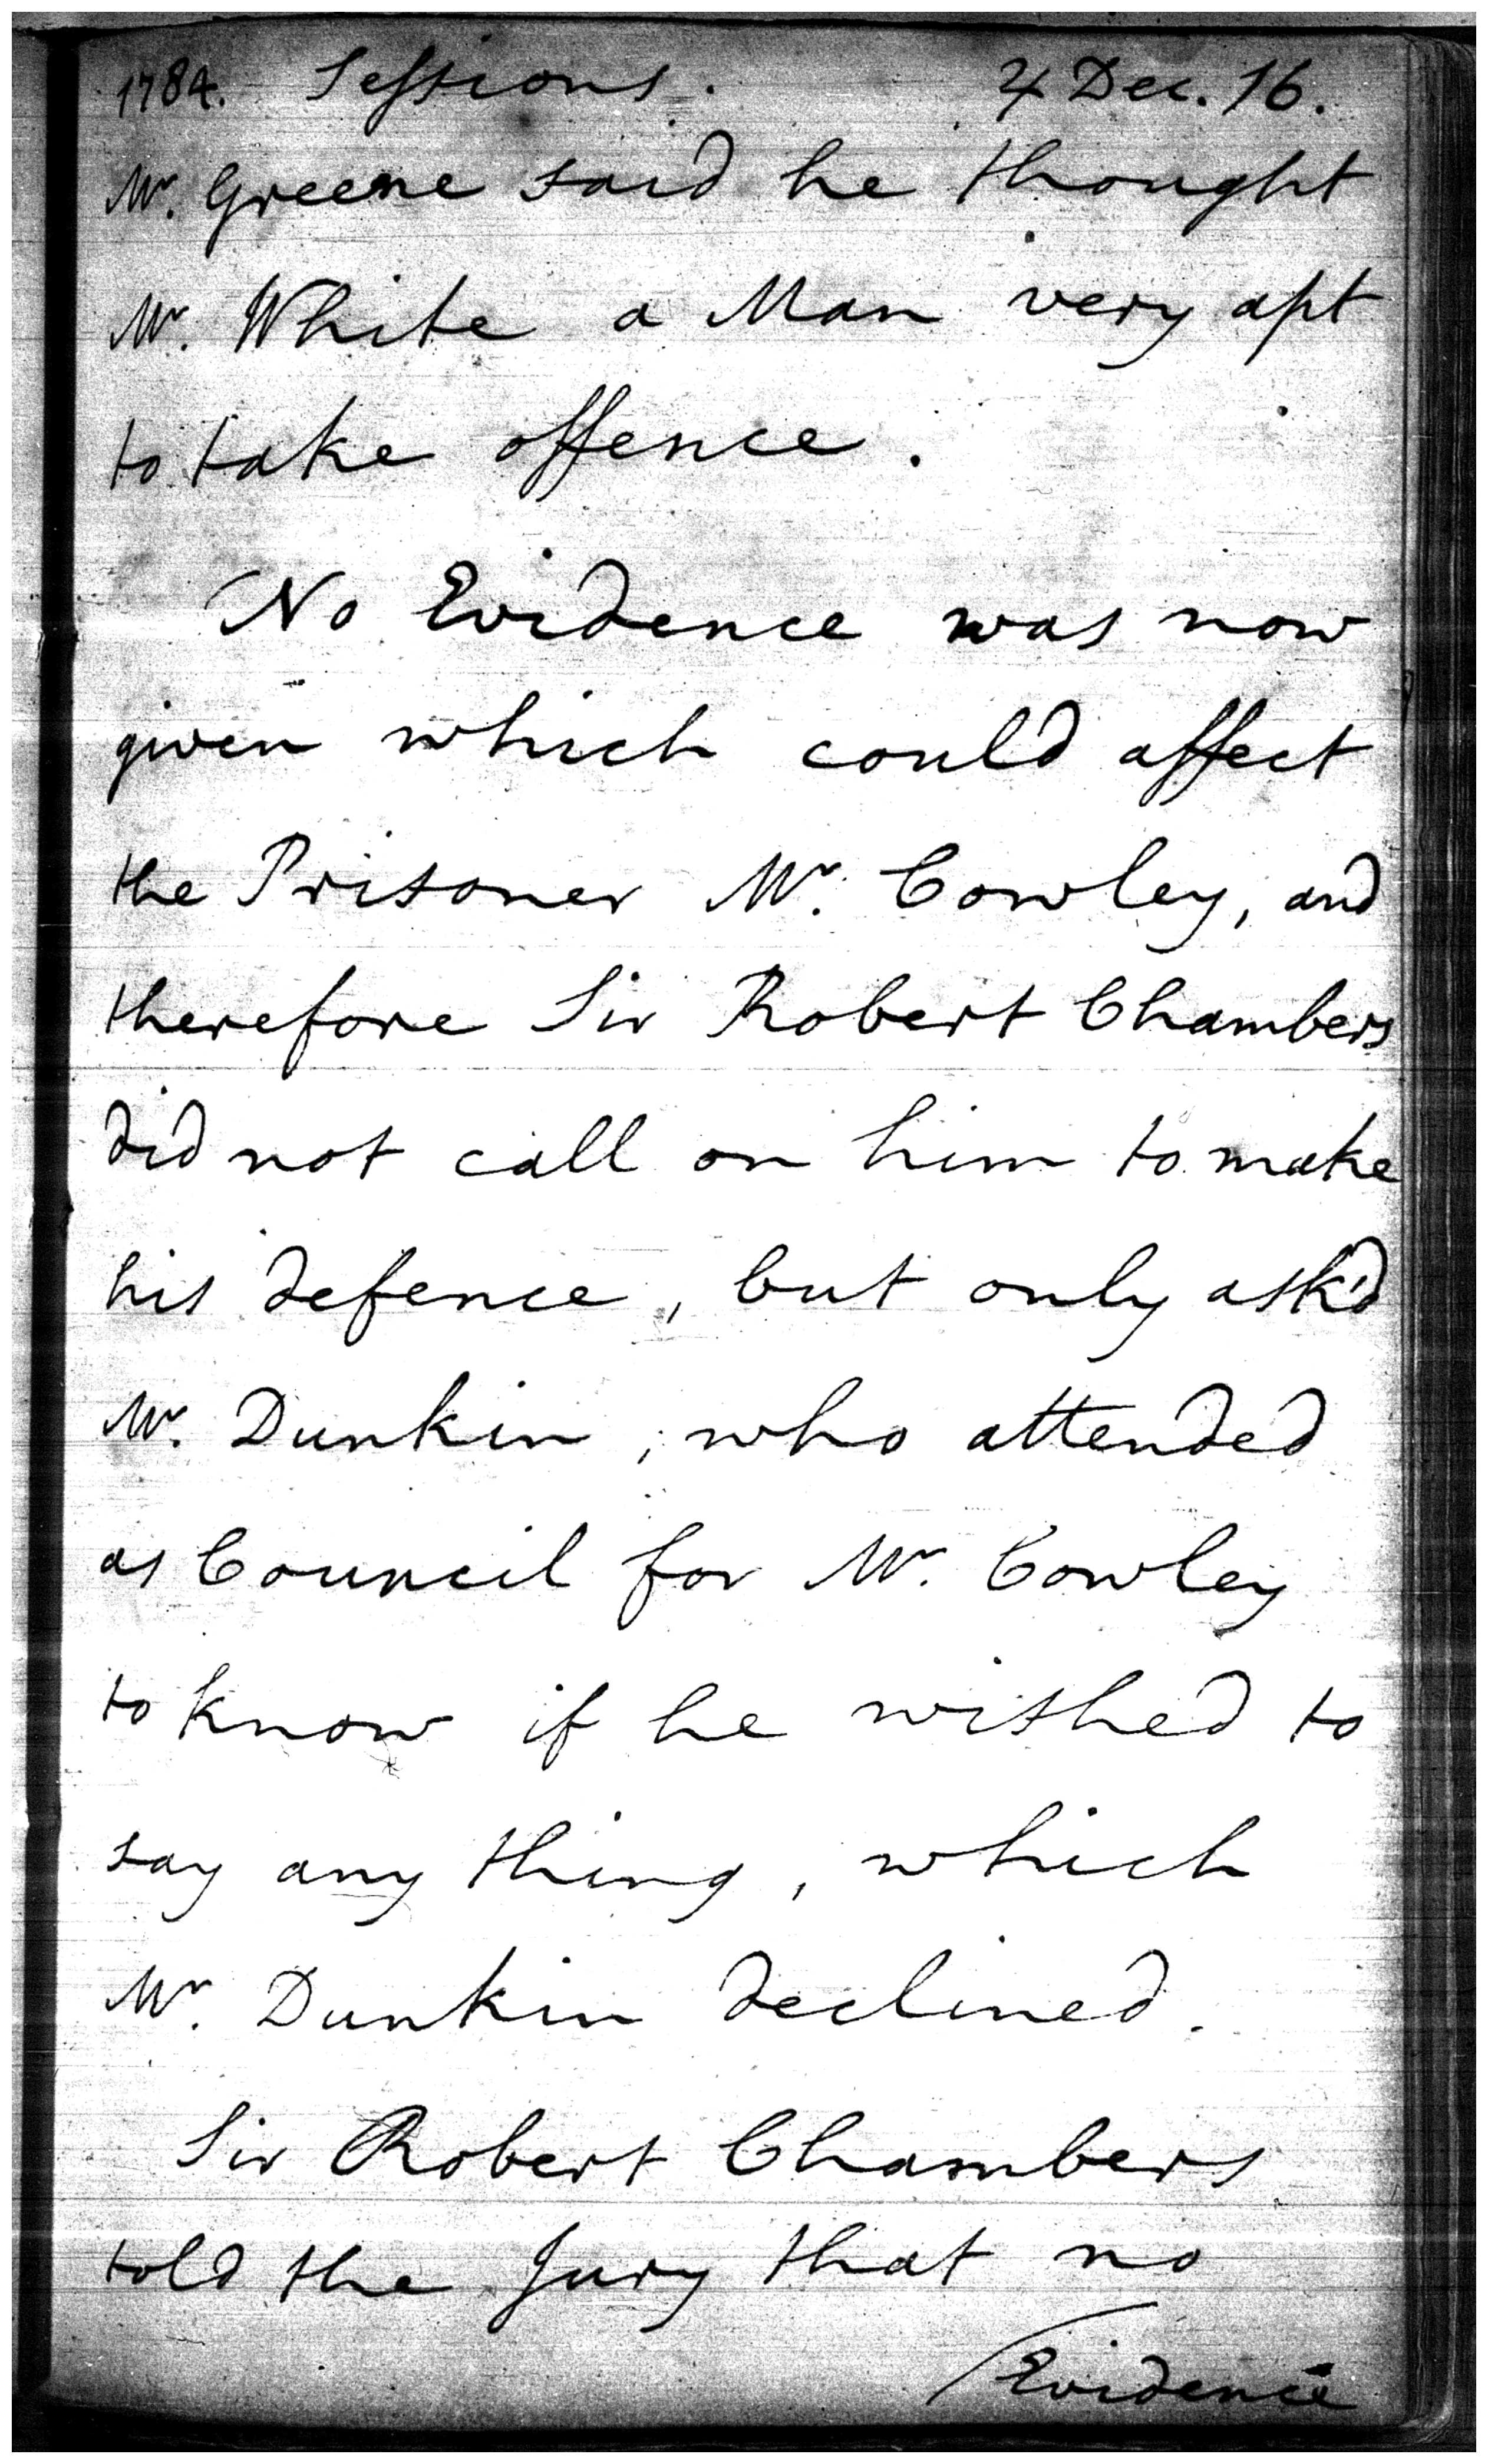 1784. Sessions. 4 Dec. 16.
Mr. Greene said he thought
Mr. White a Man very apt
to take offence.
No Evidence was now
given which could affect
the Prisoner Mr. Cowley, and
therefore Sir Robert Chambers
did not call on him to make
his defence, but only ask'd
Mr. Dunkin, who attended
as Council for Mr. Cowley
to know if he wished to
say any thing, which
Mr. Dunkin declined.
Sir Robert Chambers
told the Jury that no
Evidence